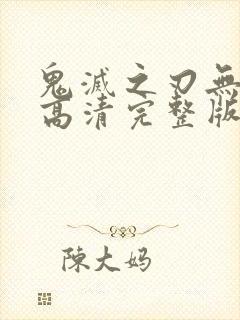 鬼滅之刃無
高清完整版
陳大妈